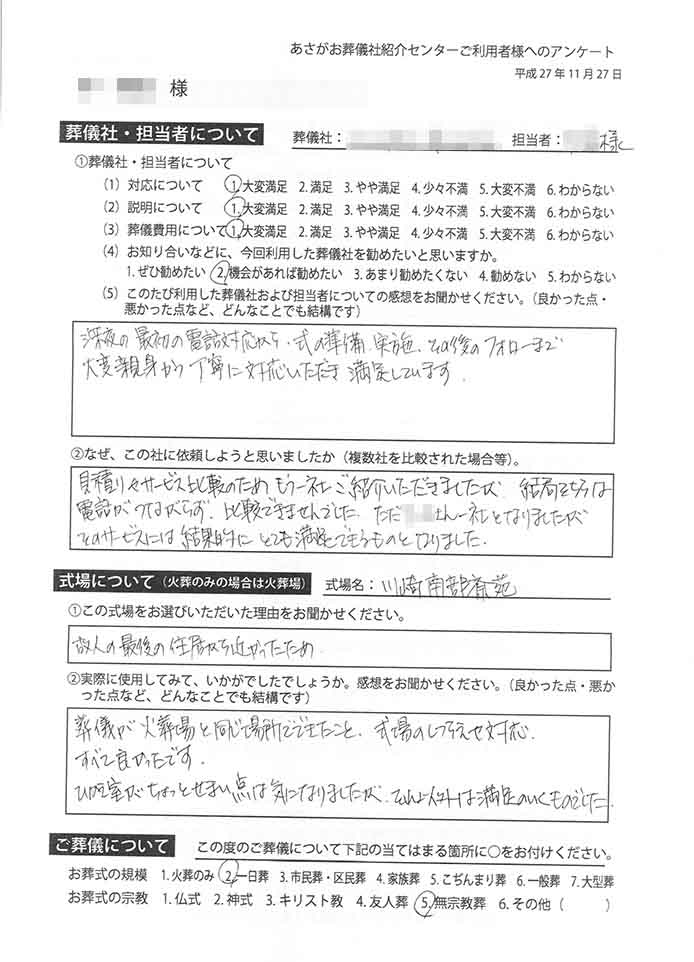 あさがお葬儀社紹介センターご利用者様へのアンケート
平成27年11月27日
様
葬儀社・担当者について 葬儀社： 担当者： 様
①葬儀社・担当者について
（1）対応について 1.大変満足 2.満足 3.やや満足 4.少々不満 5.大変不満 6.わからない
（2）説明について 1.大変満足 2.満足 3.やや満足 4.少々不満 5.大変不満 6.わからない
（3）葬儀費用について 1.大変満足 2.満足 3.やや満足 4.少々不満 5.大変不満 6.わからない
（4）お知り合いなどに、今回利用した葬儀社を勧めたいと思いますか。
1.ぜひ勧めたい 2.機会があれば勧めたい 3.あまり勧めたくない 4.勧めない 5.わからない
（5）このたび利用した葬儀社および担当者についての感想をお聞かせください。（良かった点・
悪かった点など、どんなことでも結構です）
深夜の最初の電話対応から、式の準備、実施、その後のフォローまで
大変親身かつ丁寧に対応いただき満足しています。
②なぜ、この社に依頼しようと思いましたか（複数社を比較された場合等）。
見積りやサービス比較のためもう一社ご紹介いただきましたが、結局そちらは
電話がつながらず、比較できませんでした。ただ さん一社となりましたが
そのサービスには結果的にとても満足できるものとなりました。
式場について（火葬のみの場合は火葬場） 式場名：川崎南部斎苑
①この式場をお選びいただいた理由をお聞かせください。
故人の最後の住居から近かったため
②実際に使用してみて、いかがでしたでしょうか。感想をお聞かせください。（良かった点・悪か
った点など、どんなことでも結構です）
葬儀が火葬場と同じ場所でできたこと、式場のしつらえや対応、
すべて良かったです。
ひかえ室がちょっとせまい点は気になりましたが、それ以外は満足のいくものでした。
ご葬儀について この度のご葬儀について下記の当てはまる箇所に○をお付けください。
お葬式の規模 1.火葬のみ 2.一日葬 3.市民葬・区民葬 4.家族葬 5.こぢんまり葬 6.一般葬 7.大型葬
お葬式の宗教 1.仏式 2.神式 3.キリスト教 4.友人葬 5.無宗教葬 6.その他（ ）